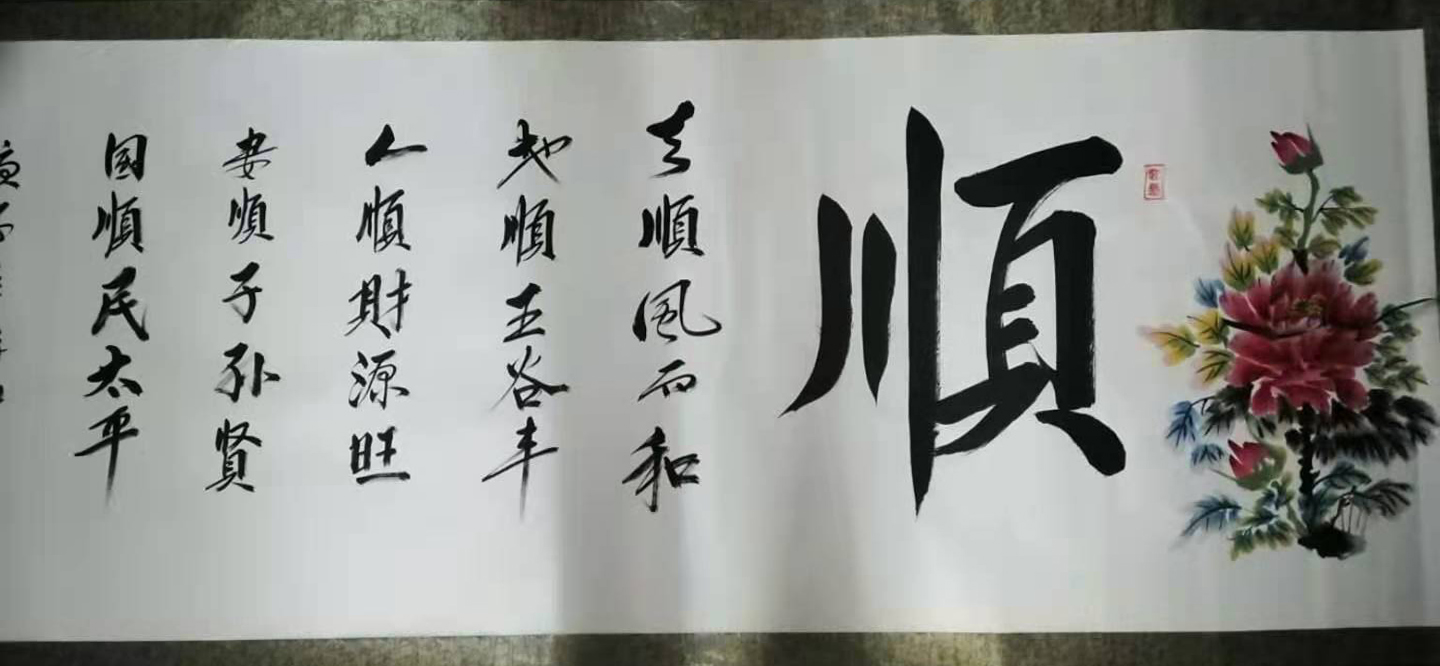 順
天順風雨和
地順五谷丰
人順財源旺
妻順子孙贤
国順民太平